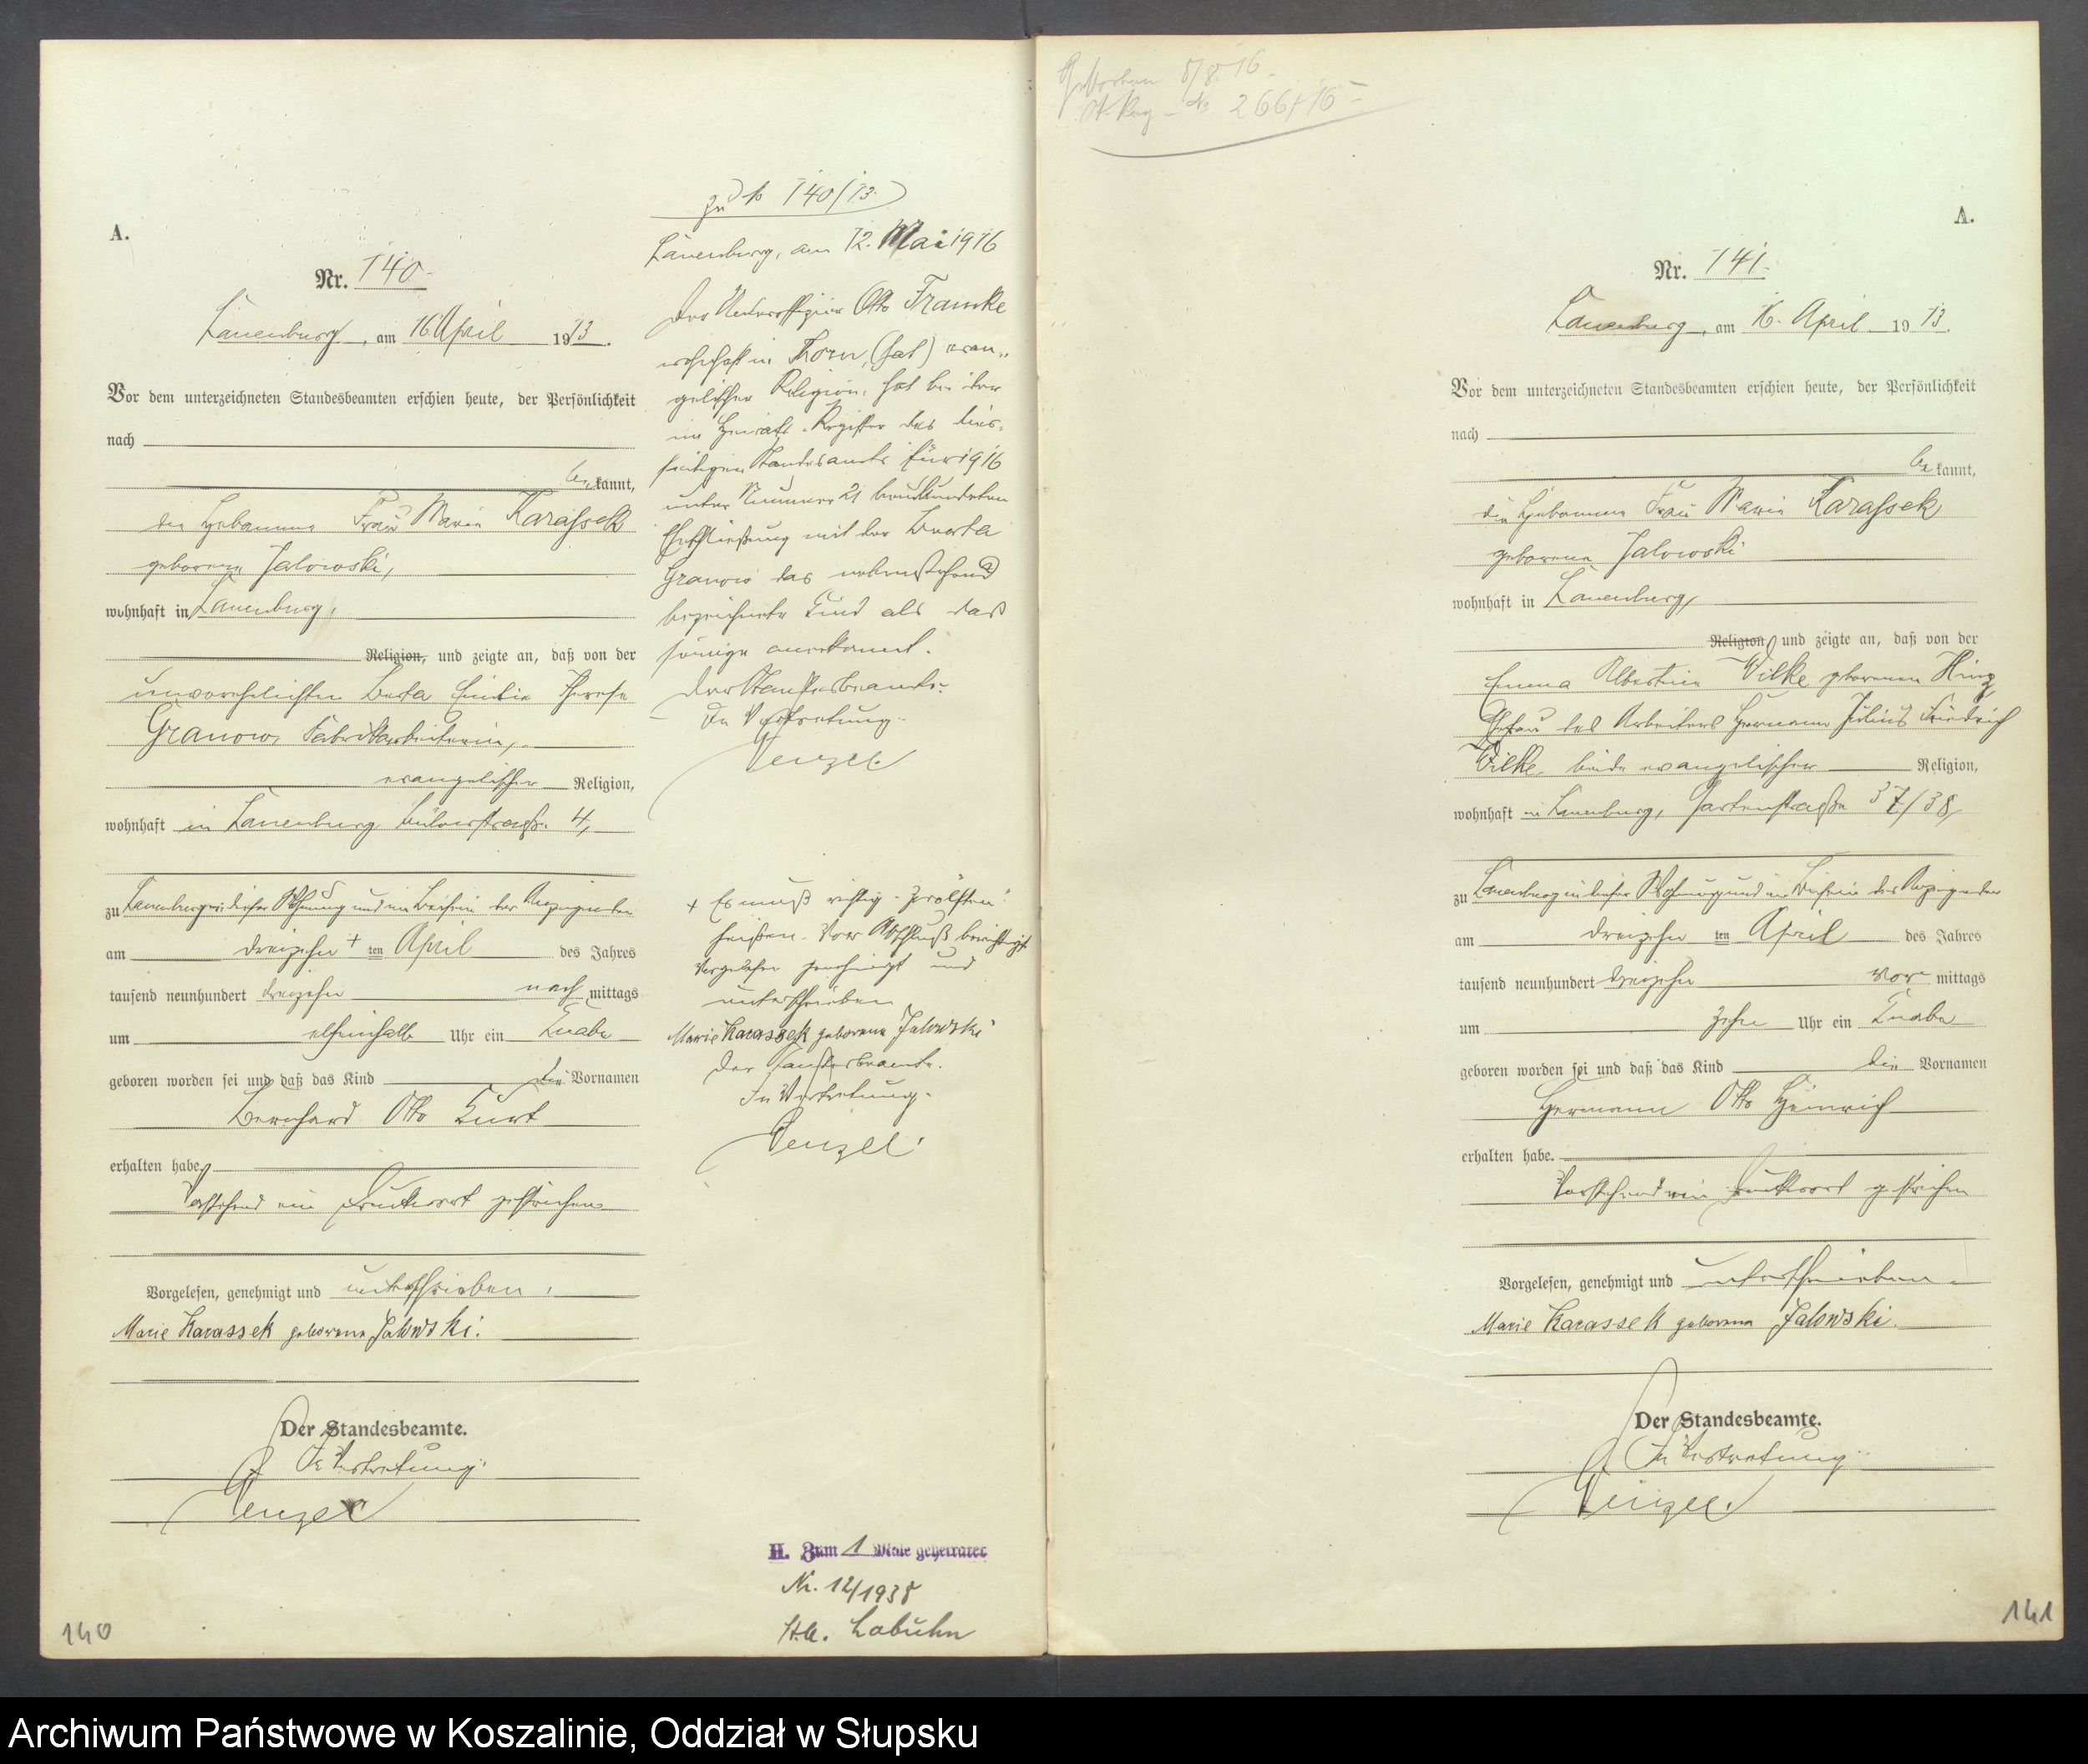 A.
Nr. 140.
Lauenburg, am 16. April 1913.
Vor dem unterzeichneten Standesbeamten erschien heute, der Persönlichkeit
nach
bekannt,
die Hebamme Frau Marie Karassek
geborene Jalowski,
wohnhaft in Lauenburg,
Religion, und zeigte an, daß von der
unverehelichten Berta Emilie Therese
Granow, Fabrikarbeiterin,
evangelischer Religion,
wohnhaft in Lauenburg Bülowstraße 4,
zu Lauenburg in dieser Wohnung und im Beisein der Anzeigenden
am dreizehn + ten April des Jahres
tausend neunhundert dreizehn nach mittags
um elfeinhalb Uhr ein Knabe
geboren worden sei und daß das Kind die Vornamen
Bernhard Otto Kurt
erhalten habe.
Vorstehend ein Druckwort gestrichen.
Vorgelesen, genehmigt und unterschrieben.
Marie Karassek geborene Jalowski.
Der Standesbeamte.
In Vertretung.
Wenzel
140
zu № 140/13.
Lauenburg, am 12. Mai 1916
Der Unteroffizier Otto Francke
wohnhaft in Thorn, (hat) evan-
gelischer Religion, hat bei der
im Heirats-Register des dies-
seitigen Standesamts für 1916
unter Nummer 21 beurkundeten
Eheschließung mit der Berta
Granow das nebenstehend
bezeichnete Kind als das
seinige anerkannt.
Der Standesbeamte.
In Vertretung.
Wenzel
+ Es muß richtig "zwölften"
heißen. Vor Abschluß berichtigt
Vorgelesen genehmigt und
unterschrieben
Marie Karassek geborene Jalowski
Der Standesbeamte.
In Vertretung.
Wenzel.
H. Zum 1 Male geheiratet
Nr. 12/1938
St.A. Labuhn
Gestorben 5/8.16.
St. Reg. No 266/16
A.
Nr. 141.
Lauenburg, am 16. April 1913.
Vor dem unterzeichneten Standesbeamten erschien heute, der Persönlichkeit
nach
bekannt,
die Hebamme Frau Marie Karassek
geborene Jalowski
wohnhaft in Lauenburg,
Religion, und zeigte an, daß von der
Emma Albertine Wilke geborenen Hinz,
Ehefrau des Arbeiters Hermann Julius Friedrich
Wilke, beide evangelischer Religion,
wohnhaft in Lauenburg, Gartenstraße 37/38,
zu Lauenburg in dieser Wohnung und im Beisein der Anzeigenden
am dreizehn ten April des Jahres
tausend neunhundert dreizehn vor mittags
um zehn Uhr ein Knabe
geboren worden sei und daß das Kind die Vornamen
Hermann Otto Heinrich
erhalten habe.
Vorstehend ein Druckwort gestrichen
Vorgelesen, genehmigt und unterschrieben.
Marie Karassek geborene Jalowski.
Der Standesbeamte.
In Vertretung.
Wenzel.
141
Archiwum Państwowe w Koszalinie, Oddział w Słupsku